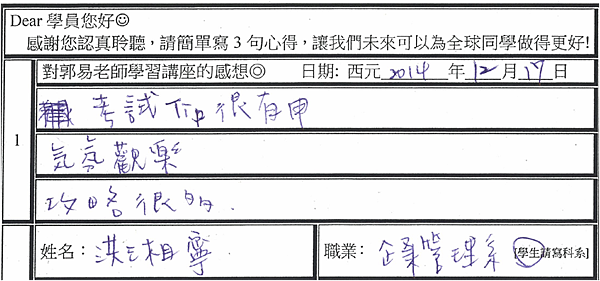 Dear 學員您好☺
感謝您認真聆聽，請簡單寫 3 句心得，讓我們未來可以為全球同學做得更好!
對郭易老師學習講座的感想◎ 日期: 西元 2014 年 12 月 17 日
1
考試 很有用
氣氛歡樂
攻略很多.
姓名： 洪 相寧 職業： 企業管理系 [學生請寫科系]